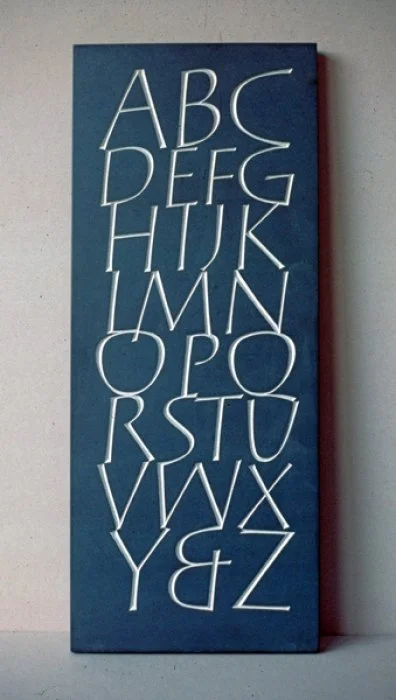 ABC
DEFG
HIJK
LMN
OPO
RSTU
VWX
Y&Z